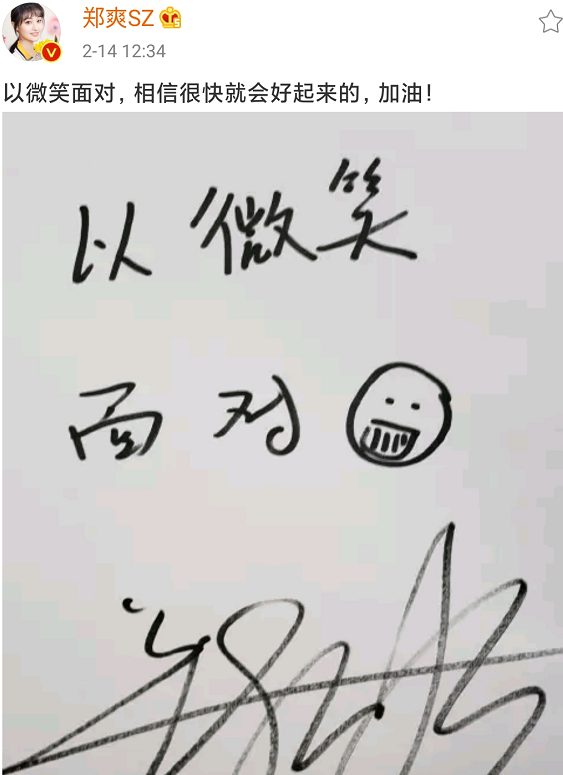 郑爽SZ
2-14 12:34
以微笑面对，相信很快就会好起来的，加油！
以微笑
面对
郑爽